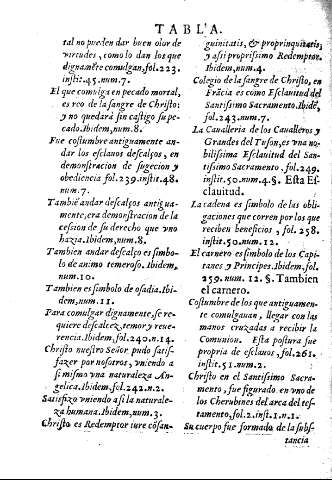 TABLA.
tal no pueden dar buen olor de
virtudes, como lo dan los que
dignamẽte comulgan, fol. 223.
instit. 45. num. 7.
El que comulga en pecado mortal,
es reo de la sangre de Christo:
y no quedarà sin castigo su pe-
cado. Ibidem, num. 8.
Fue costumbre antiguamente an-
dar los esclauos descalços, en
demonstracion de sugecion y
obediencia fol. 239. instit. 48.
num. 7.
Tambiẽ andar descalços antigua-
mente, era demonstracion de la
cession de su derecho que vno
hazia. Ibidem, num. 8.
Tambien andar descalço es simbo-
lo de animo temeroso. Ibidem,
num. 10.
Tambien es simbolo de osadia. Ibi-
dem, num. 11.
Para comulgar dignamente, se re-
quiere descalcez, temor y reue-
rencia. Ibidem, fol. 240. n. 14.
Christo nuestro Señor pudo satis-
fazer por nosotros, vniendo a
si mismo vna naturaleza An-
gelica. Ibidem, fol. 242. n. 2.
Satisfizo vniendo a si la naturale-
za humana. Ibidem, num. 3.
Christo es Redemptor iure cõsan-
guinitatis, & proprinquitatis;
y assi proprissimo Redemptor.
Ibidem, num. 4.
Colegio de la sangre de Christo, en
Frãcia es como Esclauitud del
Santissimo Sacramento. Ibidẽ,
fol. 243. num. 7.
La Caualleria de los Caualleros y
Grandes del Tuson, es vna no-
bilissima Esclauitud del San-
tissimo Sacramento, fol. 249.
instit. 50. num. 4. §. Esta Es-
clauitud.
La cadena es simbolo de las obli-
gaciones que corren por los que
reciben beneficios, fol. 258.
instit. 50. num. 12.
El carnero es simbolo de los Capi-
tanes y Principes. Ibidem, fol.
259. num. 12. §. Tambien
el carnero.
Costumbre de los que antiguamen-
te comulgauan, llegar con las
manos cruzadas a recibir la
Comunion. Esta postura fue
propria de esclauos, fol. 261.
instit. 51. num. 2.
Christo en el Santissimo Sacra-
mento, fue figurado en vno de
los Cherubines del arca del tes-
tamento, fol. 2. inst. 1. n. 1.
Su cuerpo fue formado de la subs-
tancia